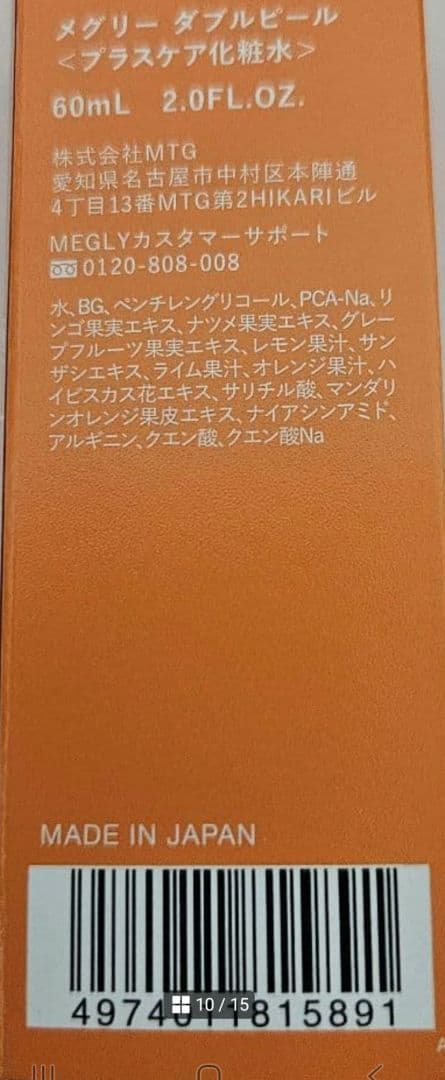 メグリー ダブルピール
＜プラスケア化粧水＞
60mL 2.0FL.OZ.
株式会社MTG
愛知県名古屋市中村区本陣通
4丁目13番MTG第2HIKARIビル
MEGLYカスタマーサポート
0120-808-008
水、BG、ペンチレングリコール、PCA-Na、リ
ンゴ果実エキス、ナツメ果実エキス、グレー
プフルーツ果実エキス、レモン果汁、サン
ザシエキス、ライム果汁、オレンジ果汁、ハ
イビスカス花エキス、サリチル酸、マンダリ
ンオレンジ果皮エキス、ナイアシンアミド、
アルギニン、クエン酸、クエン酸Na
MADE IN JAPAN
10 / 15
4974011815891